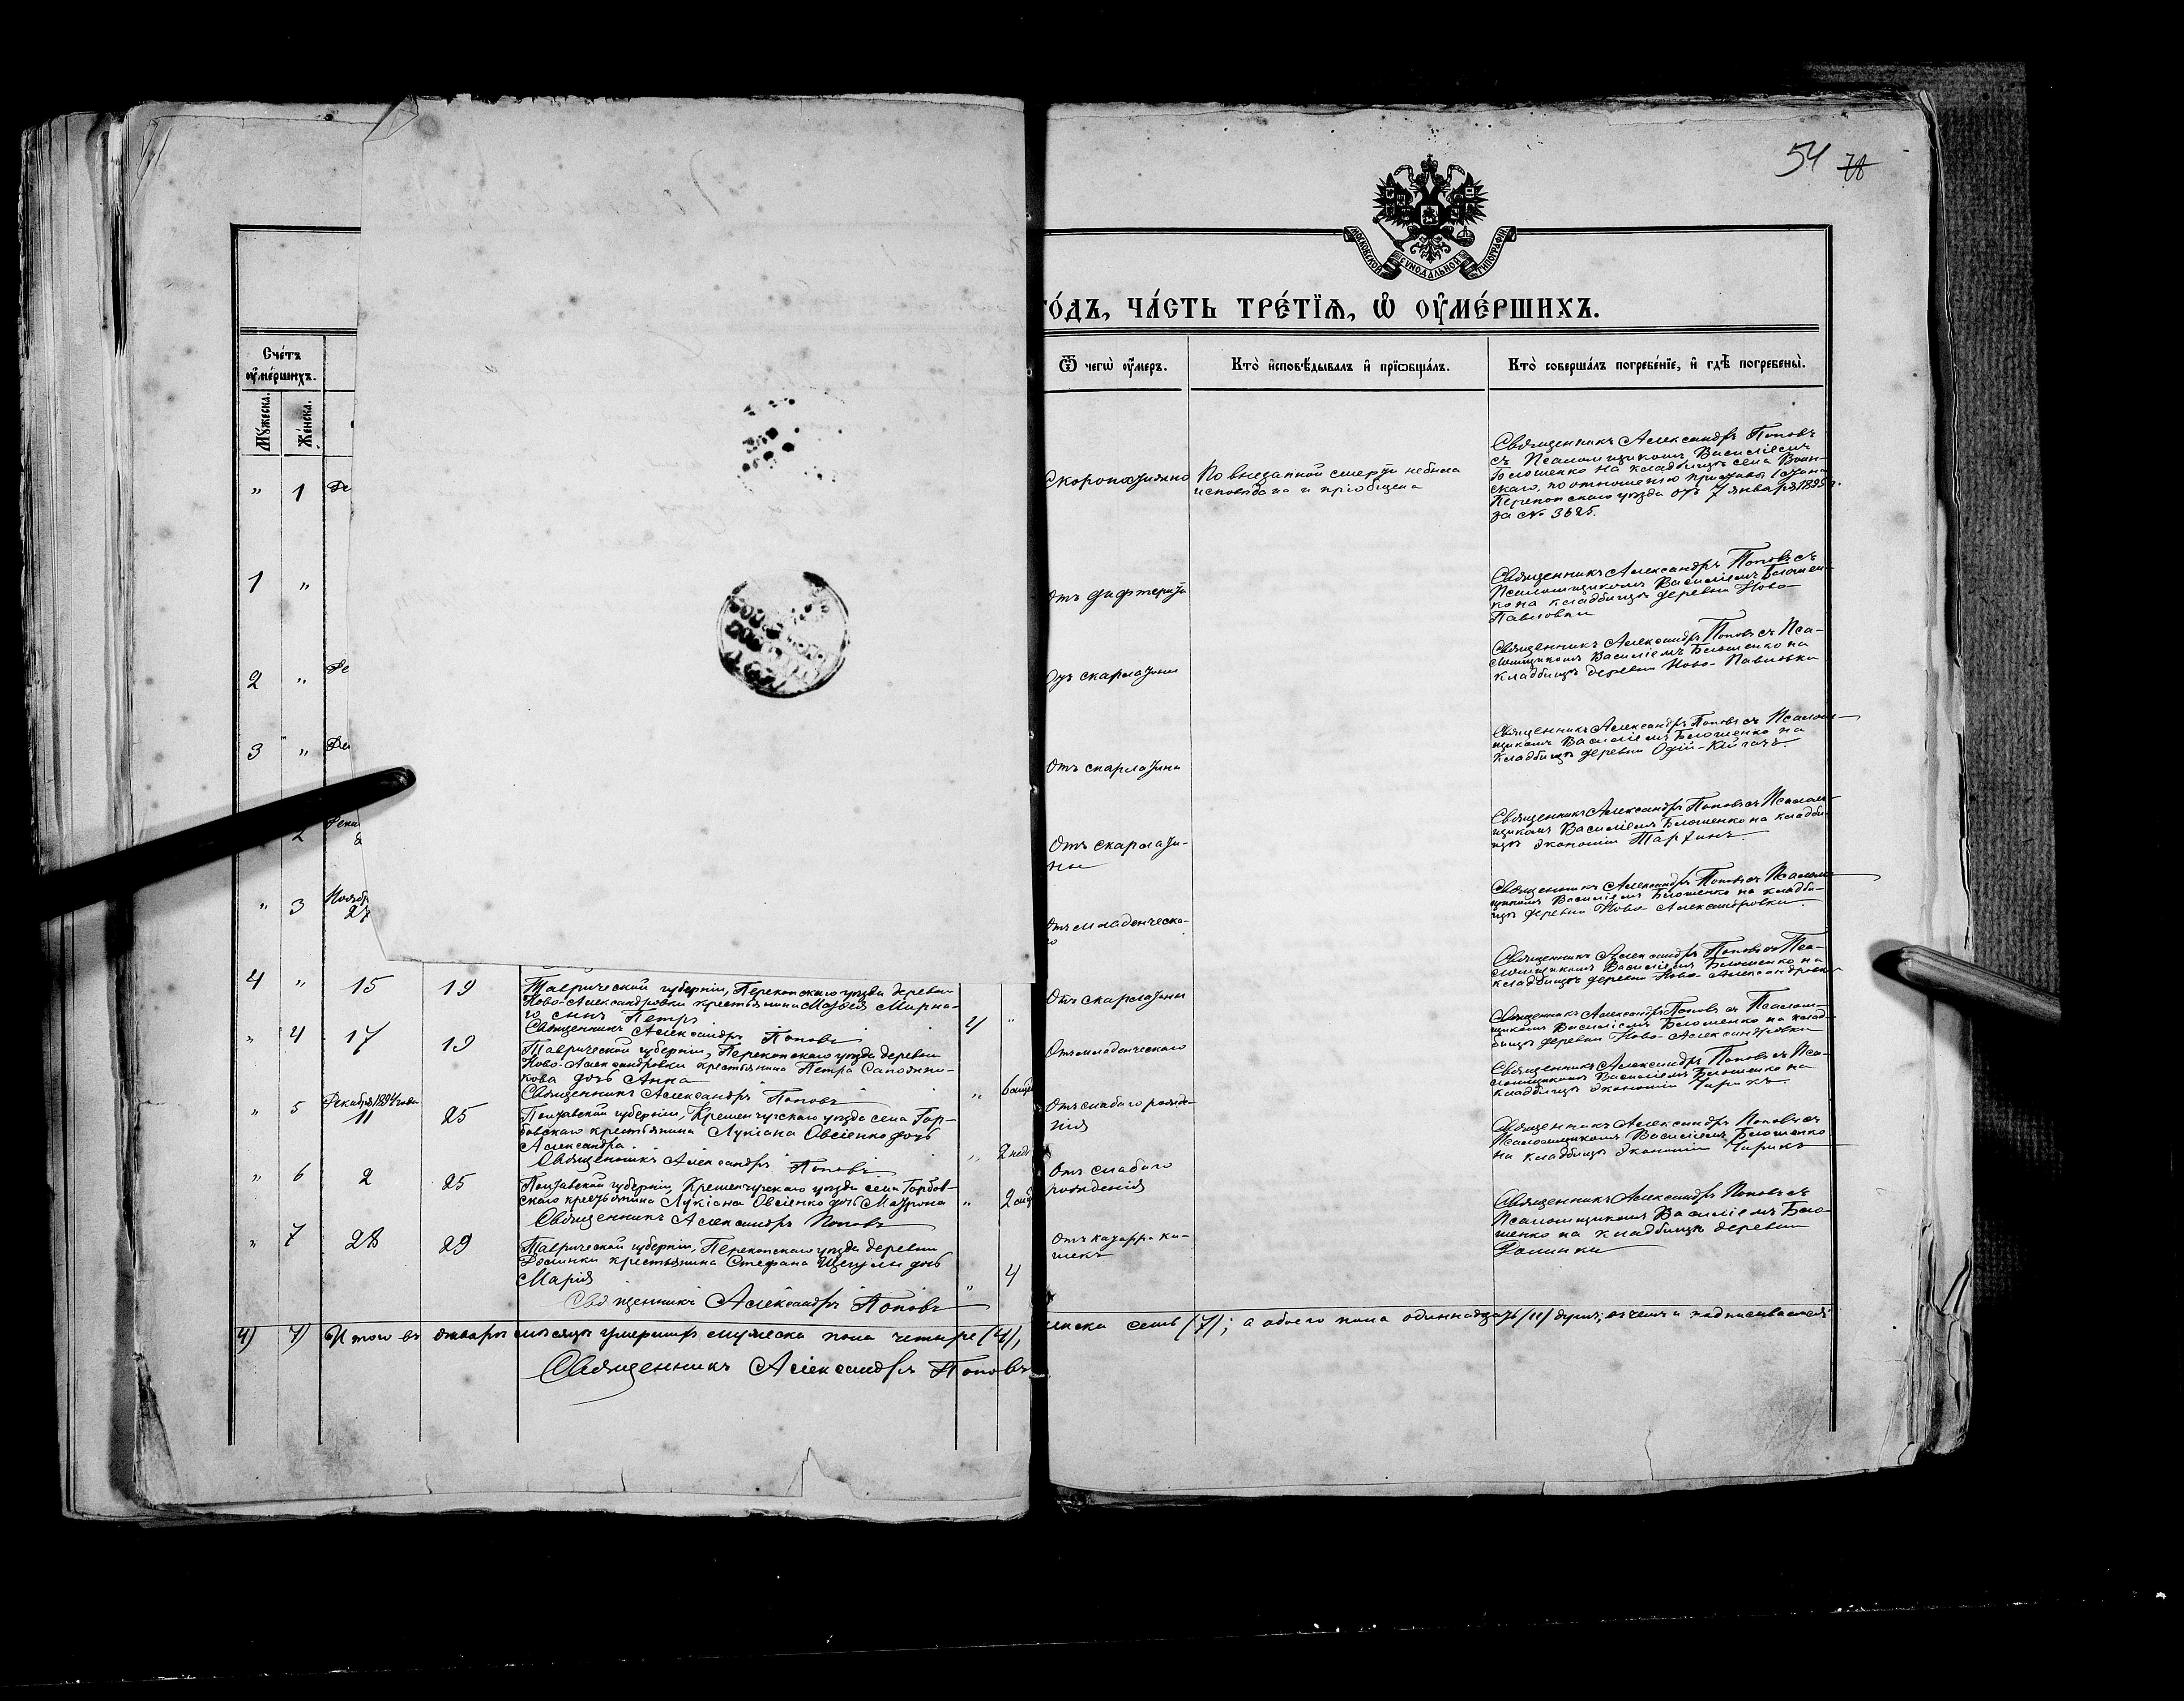 54
МОСКОВСКОЙ СУНОДАЛЬНОЙ ТИПОГРАФІИ
го́дъ, ча́сть тре́тїѧ, ѡ҆ ᲂу҆ме́ршихъ.
Сче́тъ
ᲂу҆ме́ршихъ.
Мꙋ́жеска.
Же́нска.
Ѿ чегѡ̀ ᲂу҆́меръ.
Кто̀ и҆сповѣ́дывалъ и҆ прїѡбща́лъ.
Кто̀ соверша́лъ погребе́нїе, и҆ гдѣ̀ погребены̀.
" 1 Де
Скоропостижно
По внезапной смерти небыла
исповѣдана и пріобщена
Священникъ Александръ Поповъ
съ Псаломщикомъ Василіемъ
Бѣлошенко на кладбищѣ села Воин-
скаго, по отношенію пристава 1 стана
Перекопскаго уѣзда отъ 7 января 1895 г.
за № 3625.
1 "
Отъ дифтерита
Священникъ Александръ Поповъ съ
Псаломщикомъ Василіемъ Бѣлошен-
ко на кладбищѣ деревни Ново-
Павловки
2 " Де
Отъ скарлатины
Священникъ Александръ Поповъ съ Пса-
ломщикомъ Василіемъ Бѣлошенко на
кладбищѣ деревни Ново-Павловки
3 " Де
Отъ скарлатины
Священникъ Александръ Поповъ съ Псалом-
щикомъ Василіемъ Бѣлошенко на
кладбищѣ деревни
2 Дека
Отъ скарлати-
ны
Священникъ Александръ Поповъ съ Псалом-
щикомъ Василіемъ Бѣлошенко на кладби-
щѣ экономіи Тарханъ
" 3 Ноябр
27
Отъ младенческа-
го
Священникъ Александръ Поповъ съ Псалом-
щикомъ Василіемъ Бѣлошенко на кладби-
щѣ деревни Ново-Александровки
4 " 15 19
Таврической губерніи, Перекопскаго уѣзда деревни
Ново-Александровки крестьянина Матвѣя Мирна-
го сынъ Петръ
Священникъ Александръ Поповъ
4 "
Отъ скарлатины
Священникъ Александръ Поповъ съ Пса-
ломщикомъ Василіемъ Бѣлошенко на
кладбищѣ деревни Ново-Александровки
" 4 17 19
Таврической губерніи, Перекопскаго уѣзда деревни
Ново-Александровки крестьянина Петра Сапожни-
кова дочь Анна
Священникъ Александръ Поповъ
" 6 мѣс
Отъ младенческаго
Священникъ Александръ Поповъ съ Псалом-
щикомъ Василіемъ Бѣлошенко на клад-
бищѣ деревни Ново-Александровки
" 5 Декабря 1894 года
11 25
Полтавской губерніи, Кременчугскаго уѣзда села Гор-
бовскаго крестьянина Лукіана Овсіенко дочь
Александра
Священникъ Александръ Поповъ
" 2 нед
Отъ слабаго рожде-
нія
Священникъ Александръ Поповъ съ Пса-
ломщикомъ Василіемъ Бѣлошенко на
кладбищѣ экономіи Чирикъ
" 6 2 25
Полтавской губерніи, Кременчугскаго уѣзда села Горбов-
скаго крестьянина Лукіана Овсіенко дочь Матрона
Священникъ Александръ Поповъ
" 2
Отъ слабаго
рожденія
Священникъ Александръ Поповъ съ
Псаломщикомъ Василіемъ Бѣлошенко
на кладбищѣ экономіи Чирикъ
" 7 28 29
Таврической губерніи, Перекопскаго уѣзда деревни
Долинки крестьянина Стефана дочь
Марія
Священникъ Александръ Поповъ
" 4
Отъ катарра ки-
шекъ
Священникъ Александръ Поповъ съ
Псаломщикомъ Василіемъ Бѣло-
шенко на кладбищѣ деревни
Долинки
4) 7) Итого въ январѣ мѣсяцѣ умершихъ мужеска пола четыре (4),
женска семь (7); а обоего пола одиннадцать (11) душъ; въ чемъ и подписываемся:
Священникъ Александръ Поповъ